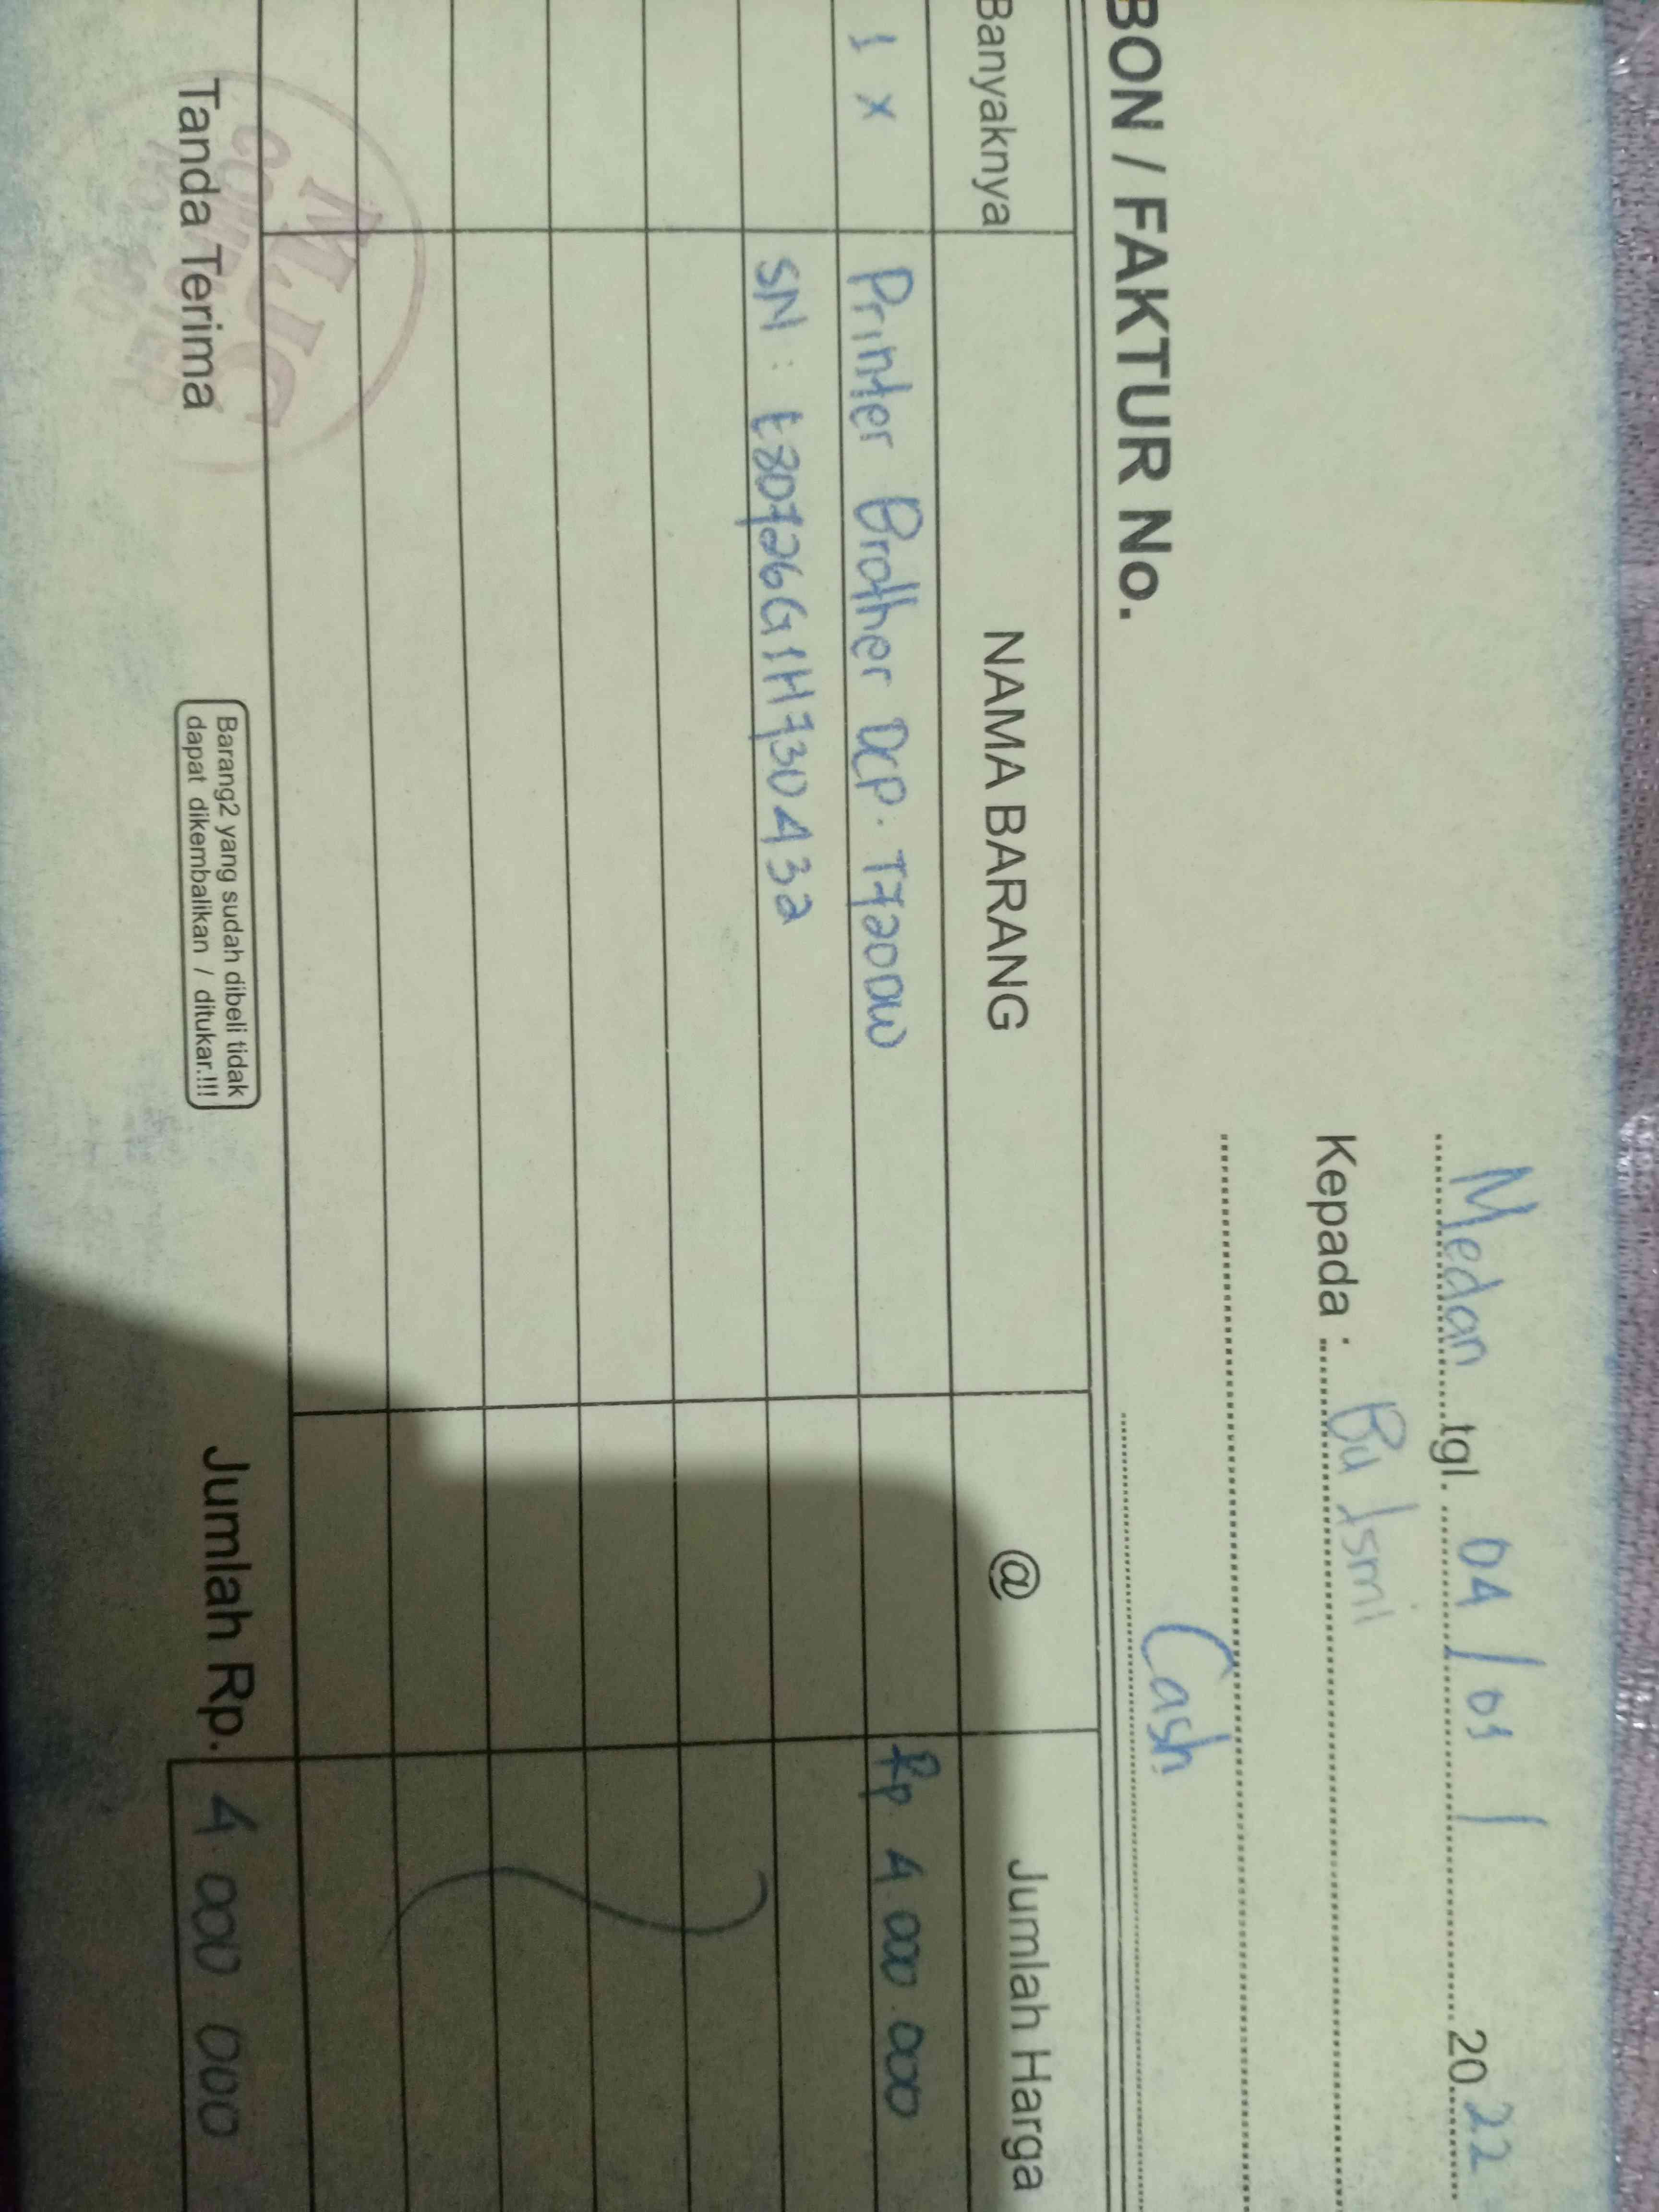 Medan tgl. 04 / 01 / 2022
Kepada : Bu Ismi
Cash
BON / FAKTUR No.
Banyaknya NAMA BARANG @ Jumlah Harga
1 x Printer Brother DCP. T720DW Rp 4.000.000
SN : E80726G1H730432
Tanda Terima
MJG
Barang2 yang sudah dibeli tidak
dapat dikembalikan / ditukar.!!!
Jumlah Rp. 4.000.000